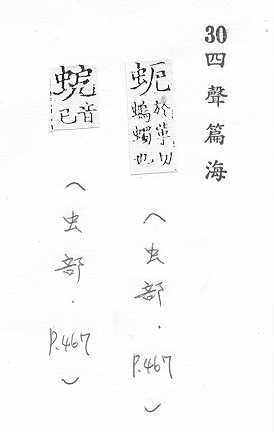 30四聲篇海
蚅於革切螐蠋也（虫部．P.467）
音已（虫部．P.467）